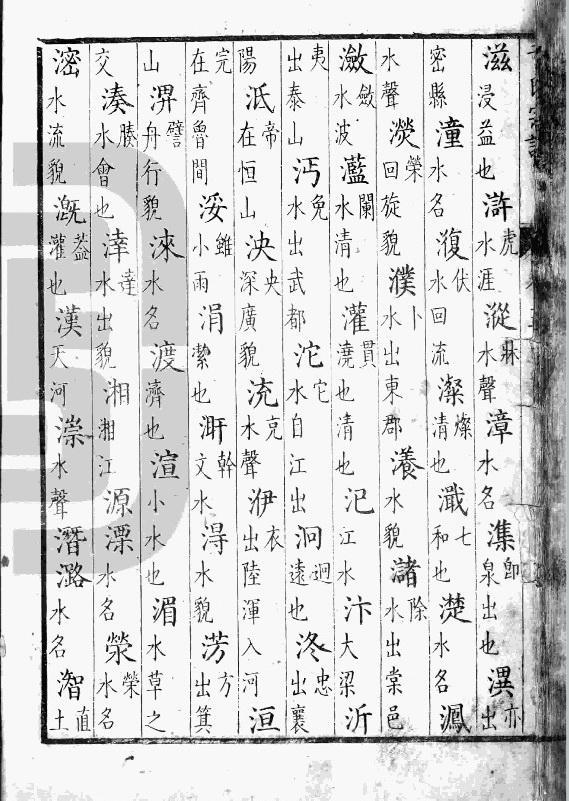 滋浸益也滸虎水涯漎水聲漳水名潗即泉出也潩亦出
密縣潼水名澓伏水回流澯燦清也濈七和也濋水名
水聲濴榮回旋貌濮卜水出東郡瀁水貌㶆除水出棠邑
瀲斂水波灆闌水清也灌貫澆也清也汜江水汴大梁沂
夷出泰山沔免水出武都沱它水自江出泂迥遠也泈忠出襄
陽泜帝在恒山泱央深廣貌克水聲洢衣出陸渾入河洹
完在齊魯間浽雖小雨涓潔也幹文水淂水貌淓方出箕
山淠譬舟行貌淶水名渡濟也渲小水也湄水草之
交湊腠水會也達水出貌湘湘江源溧水名滎榮水名
滵水流貌溉蓋灌也漢天河漴水聲潛潞水名潪直土